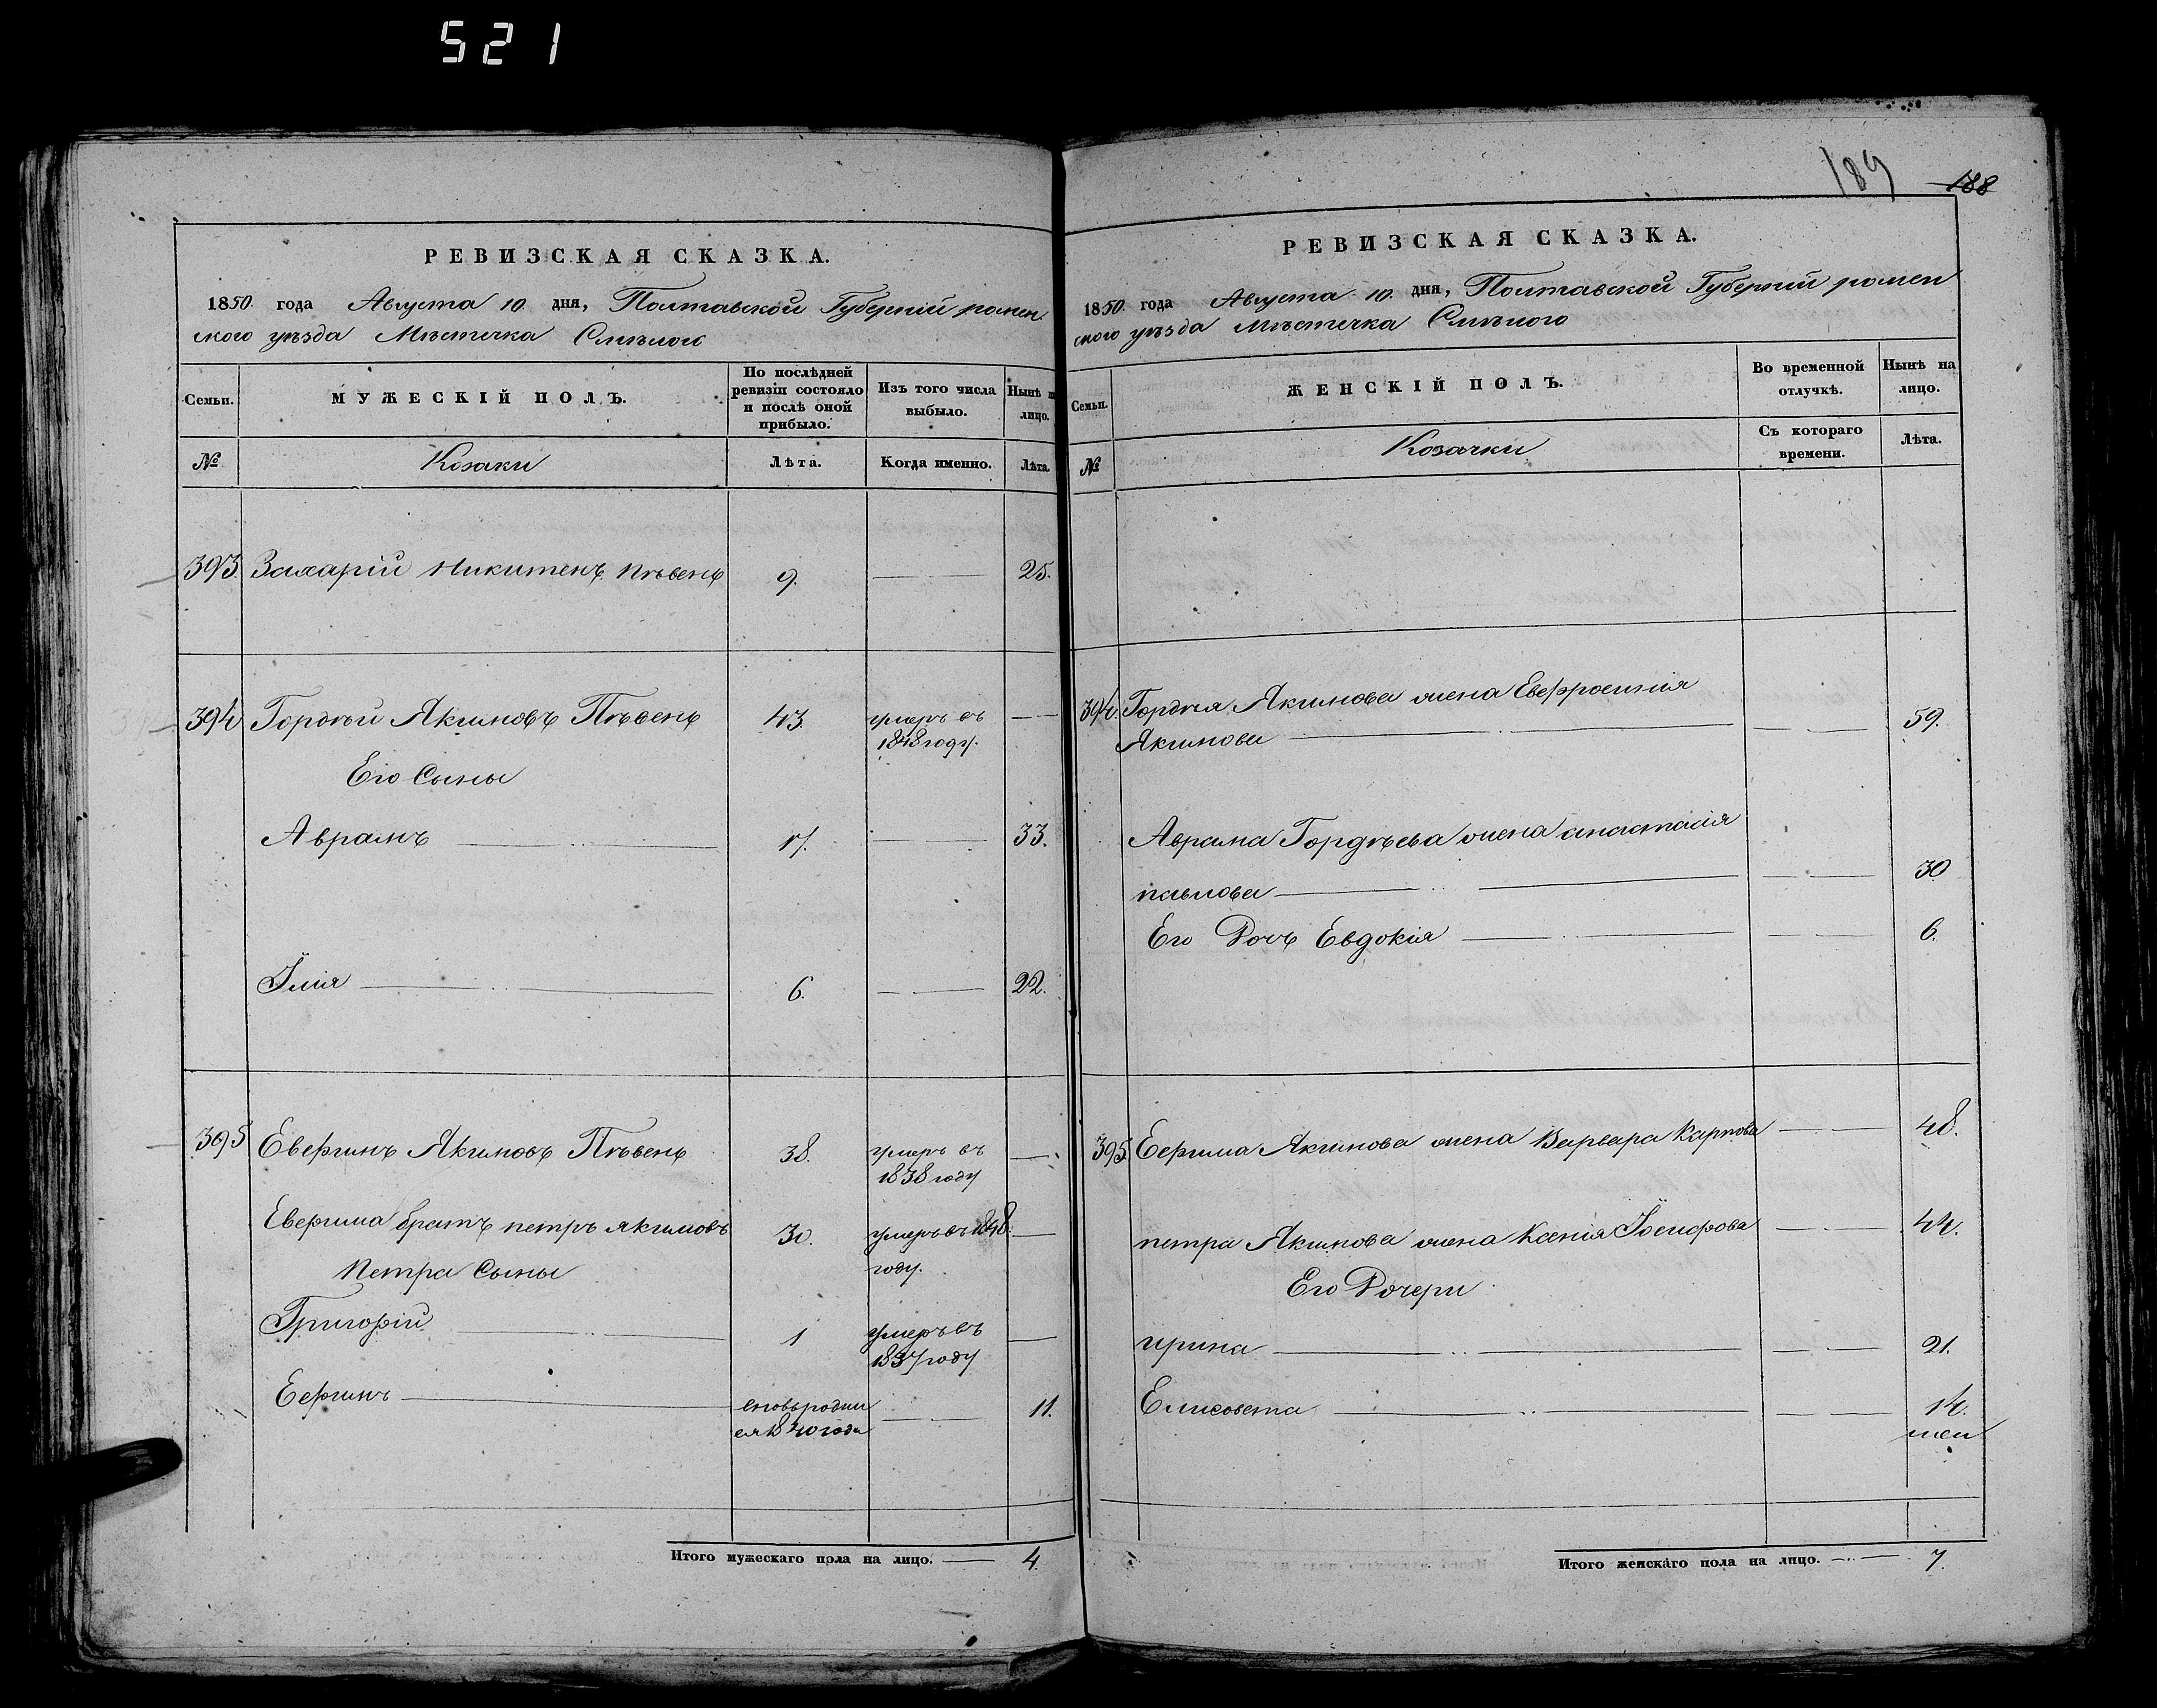 521
РЕВИЗСКАЯ СКАЗКА.
1850. года Августа 10. дня, Полтавской Губерніи ромен
ского уѣзда Мѣстечка Смѣлого
Семьи.
МУЖЕСКІЙ ПОЛЪ.
По послѣдней ревизіи состояло и послѣ оной прибыло.
Изъ того числа выбыло.
Нынѣ на лицо.
№
Козаки
Лѣта.
Когда именно.
Лѣта.
393. Захарій Никитенъ Пѣвень 9. 25.
394 Гордѣй Якимовъ Пѣвень 43. умеръ въ
1848 году.
Его Сыны
Аврамъ 17. 33.
Ілія 6. 22.
395 Евфимъ Якимовъ Пѣвень 38. умеръ въ
1838 году
Евфима братъ петръ якимовъ 30. умеръ въ 1848.
году.
Петра Сыны
Григорій 1 умеръ въ
1837 году
Еѳимъ вновь родил 11.
ся 1840 года
Итого мужескаго пола на лицо. 4.
189 188
РЕВИЗСКАЯ СКАЗКА.
1850. года Августа 10. дня, Полтавской Губерніи ромен
ского уѣзда Мѣстечка Смѣлого
Семьи.
ЖЕНСКІЙ ПОЛЪ.
Во временной отлучкѣ.
Нынѣ на лицо.
№
Козачки
Съ котораго времени.
Лѣта.
394. Гордѣя Якимова жена Евфросинія
Якимова 59.
Аврама Гордѣева жена анастасія
павлова 30
Его Дочь Евдокія 6.
395 Еѳима Якимова жена Варвара Карпова 48.
петра Якимова жена Ксенія Іосифова 44.
Его Дочери
ирина 21.
Елисовета 14.
Итого женскаго пола на лицо. 7.